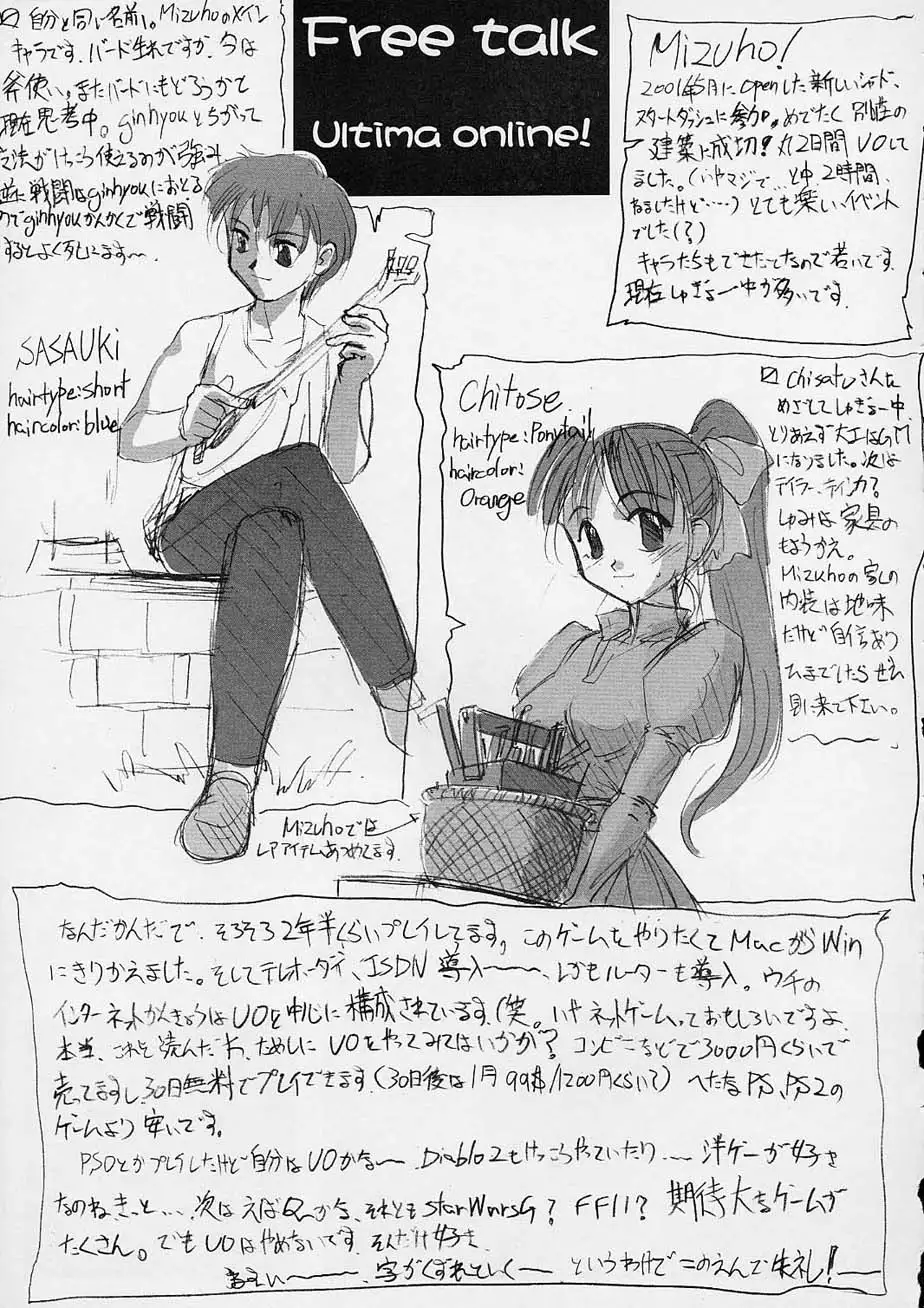 Free talk
Ultima online!
自分と同じ名前。Mizuhoのメイン
キャラです。バード生れですが、今は
斧使い。またバードにもどろうかて
現在思考中。ginhyouとちがって
魔法がけっこう使えるのが強み
逆に戦闘はginhyouにおとる
のでginhyouかんかくで戦闘
するとよく死にます〜。
SASAUKi
hairtype:short
haircolor:blue
Mizuho!
2001年5月にOpenした新しいシャド、
スタートダッシュに参加。めでたく別荘の
建築に成功!丸2日間UOして
ました。(いやマジで…と中2時間、
ねましたけど……)とても楽しいイベント
でした(?)
キャラたちもできたてなので若いです。
現在しゅぎょー中が多いです。
Chitose
hairtype:Ponytail
haircolor:
Orange
Chisatuさんを
めざしてしゅぎょー中、
とりあえず大工はGM
になりました。次は
テイラー、ティンカ?
しゅみは家具の
もようがえ。
Mizuhoの家の
内装は地味
だけど自信あり
ひまでしたらぜひ
見に来て下さい。
Mizuhoでは
レアアイテムあつめてます。
なんだかんだで、そろそろ2年半くらいプレイしてます。このゲームをやりたくてMacからWin
にきりかえました。そしてテレホーダイ、ISDN導入〜〜、しかもルーターも導入。ウチの
インターネットかんきょうはUOを中心に構成されています。(笑。いやネットゲームっておもしろいですよ、
本当、これを読んだ方、ためしにUOをやってみてはいかが?コンビニなどで3000円くらいで
売ってますし30日無料でプレイできます(30日後は1月99$/1200円くらいで)へたなPS、PS2の
ゲームより安いです。
PSOとかプレイしたけど自分はUOかな〜 Diablo2もけっこうやっていたり…洋ゲーが好き
なのねきっと…、次はえばQ〜かな、それともStarWarsG?FF11?期待大なゲームが
たくさん。でもUOはやめないです、そんだけ好き。
字がくずれていく〜 というわけでこのへんで失礼!